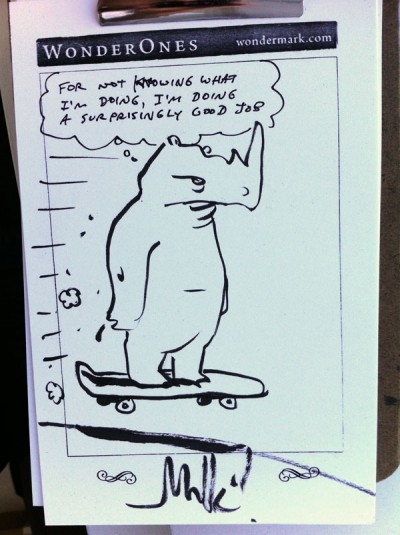 WONDERONES
wondermark.com
FOR NOT KNOWING WHAT
I'M DOING, I'M DOING
A SURPRISINGLY GOOD JOB
Malki!